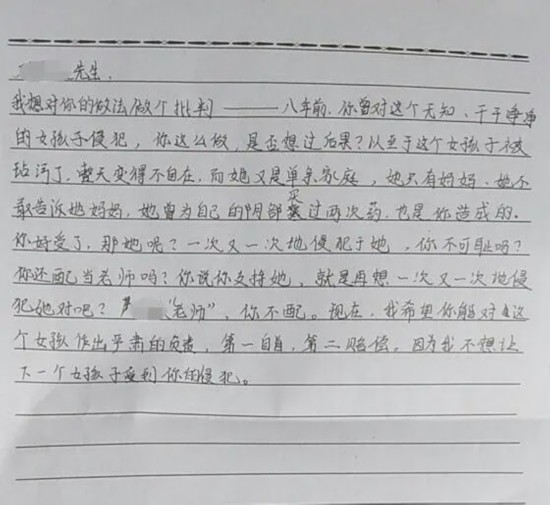 先生.
我想对你的做法做个批判——八年前.你曾对这个无知、干干净净
的女孩子侵犯,你这么做,是否想过后果?以至于这个女孩子被
玷污了,整天变得不自在,而她又是单亲家庭,她只有妈妈.她不
敢告诉她妈妈,她曾为自己的阴部买过两次药,也是你造成的.
你好受了,那她呢?一次又一次地侵犯于她,你不可耻吗?
你还配当老师吗?你说你支持她,就是再想一次又一次地侵
犯她对吧?"老师",你不配。现在,我希望你能对这
个女孩作出严肃的负责,第一自首,第二赔偿。因为我不想让
下一个女孩子受到你的侵犯。